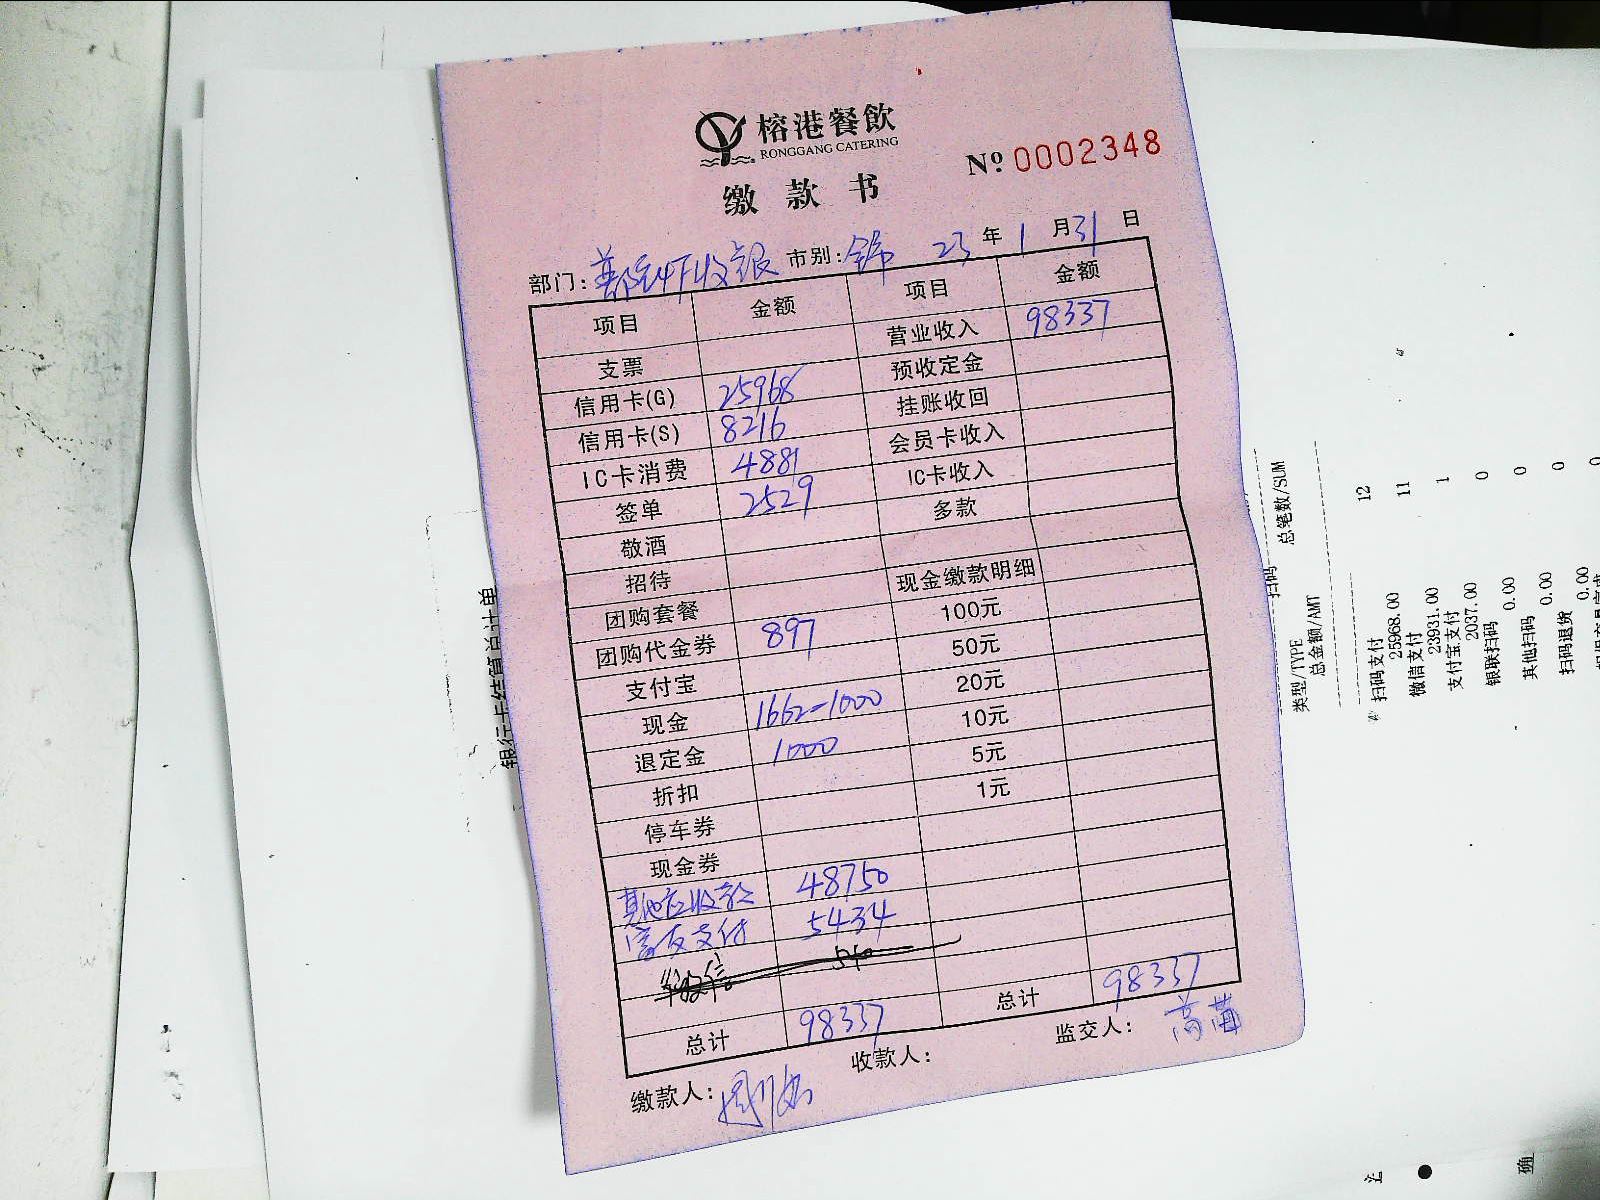 榕港餐飲
RONGGANG CATERING
缴款书
№ 0002348
部门: 收银 市别: 23年1月31日
项目 金额 项目 金额
支票 营业收入 98337
信用卡(G) 25968 预收定金
信用卡(S) 8216 挂账收回
IC卡消费 4881 会员卡收入
签单 2529 IC卡收入
敬酒 多款
招待
团购套餐 现金缴款明细
团购代金券 897 100元
支付宝 50元
现金 1662-1000 20元
退定金 1000 10元
折扣 5元
停车券 1元
现金券
其他应收款 48750
支付 5434
总计 98337 总计 98337
缴款人: 收款人: 监交人:
银行卡结算总计单
扫码
类型/TYPE 总笔数/SUM
总金额/AMT
扫码支付 12
25968.00
微信支付 11
23931.00
支付宝支付 1
2037.00
银联扫码 0
0.00
其他扫码 0
0.00
扫码退货 0
0.00
确